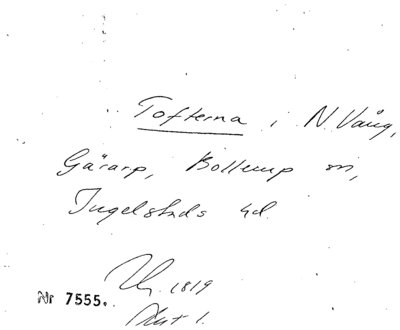 Tofterna i N. Vång,
Gärarp, Bollerup sn,
Ingelstads hd.
1819
Nr 7555.
Akt 1.